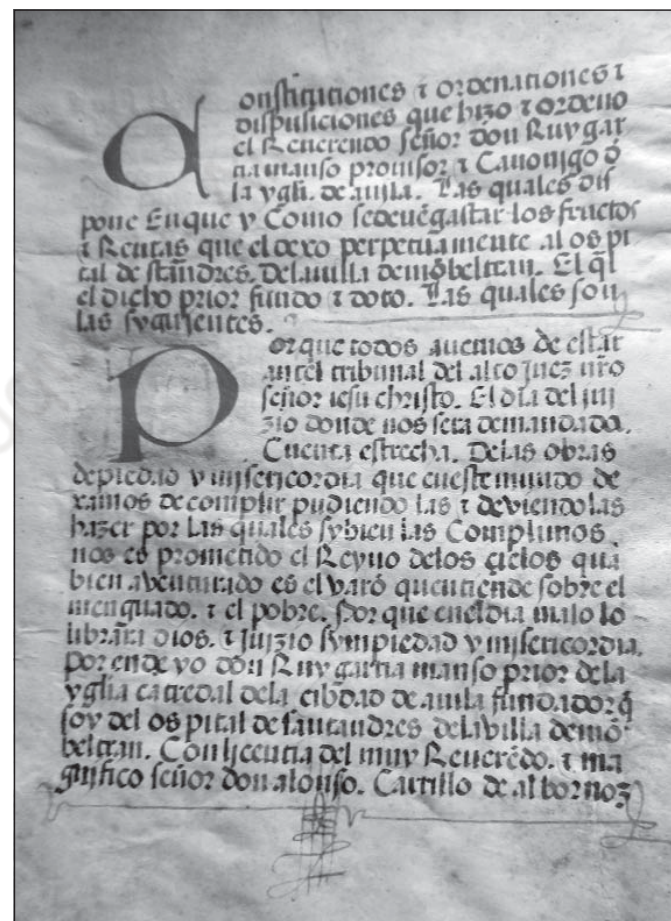 Constituciones τ ordenaciones τ
dispusiciones que hizo τ ordeno
el Reuerendo señor don Ruy gar
cia manso prouisor τ Canonigo đ
la ygłi. de auila. Las quales dis
pone En que y Como se deuē gastar los fructos
τ Rentas que el dexo perpetuamente al os pi
tal de sātandres. Dela uilla de mōbeltran. El q̄l
el dicho prior fundo τ doto. Las quales son
las syguientes.
Porque todos auemos de estar
ant el tribunal del alto Juez nr̄o
señor iesu christo. El dia del iuj
zio donde nos sera demandada.
Cuenta estrecha. Delas obras
de piedad y misericordia que eneste mundo de
xamos de complir pudiendo las τ deviendo las
hazer por Las quales sy bien las Complimos.
nos es prometido el Reyno delos çielos qua
bien aventurado es el varō que entiende sobre el
menguado. τ el pobre. Por que enel dia malo lo
librara dios. τ Juizio sym piedad y misericordia.
por ende yo don Ruy garcia manso prior dela
yglia catredal dela cibdad de auila fundador q̄
soy del os pital de santandres dela villa de mō
beltran. Con licencia del muy Reuerēdo. τ ma
gnifico señor don alonso. Carrillo de albornoz